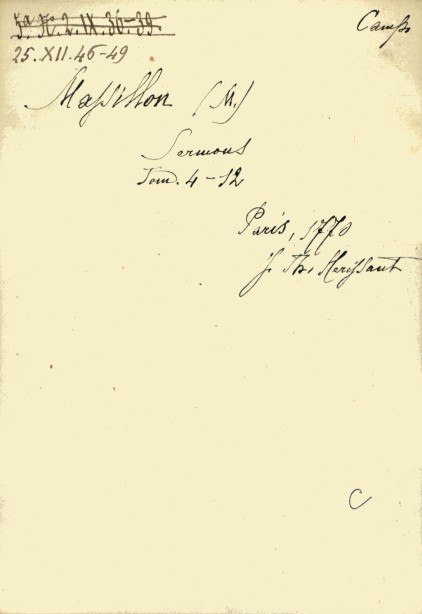 5ª K. 2. IX. 36-39.
Campo
25. XII. 46-49
Massillon (M.)
Sermons
Tom. 4-12
Paris, 1770
J. Th. Herissant
C